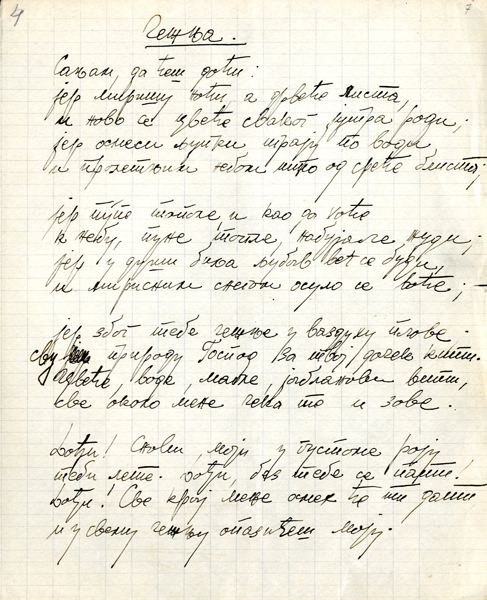 4
7
Чежња.
Сањам, да ћеш доћи:
јер миришу ноћи, а дрвеће листа,
и ново се цвеће сваког јутра роди;
јер осмеси љупки играју по води,
и пролетњим небом што од среће блиста;
јер пупе тополе, и као да хоће
к небу, пуне топле, набујале жуди;
јер у души биља љубав већ се буди,
и мирисним снегом осуло се воће; –
јер због тебе чежње у ваздуху плове.
сву природу Господ за твој дочек кити.
Цвеће, воде, магле, јабланови вити,
све около мене чека те и зове.
Дођи! Снови моји у густоме роју
теби лете. Дођи, без тебе се пати!
Дођи! Све крај мене осмех ће ти дати
и у свему чежњу опазићеш моју.